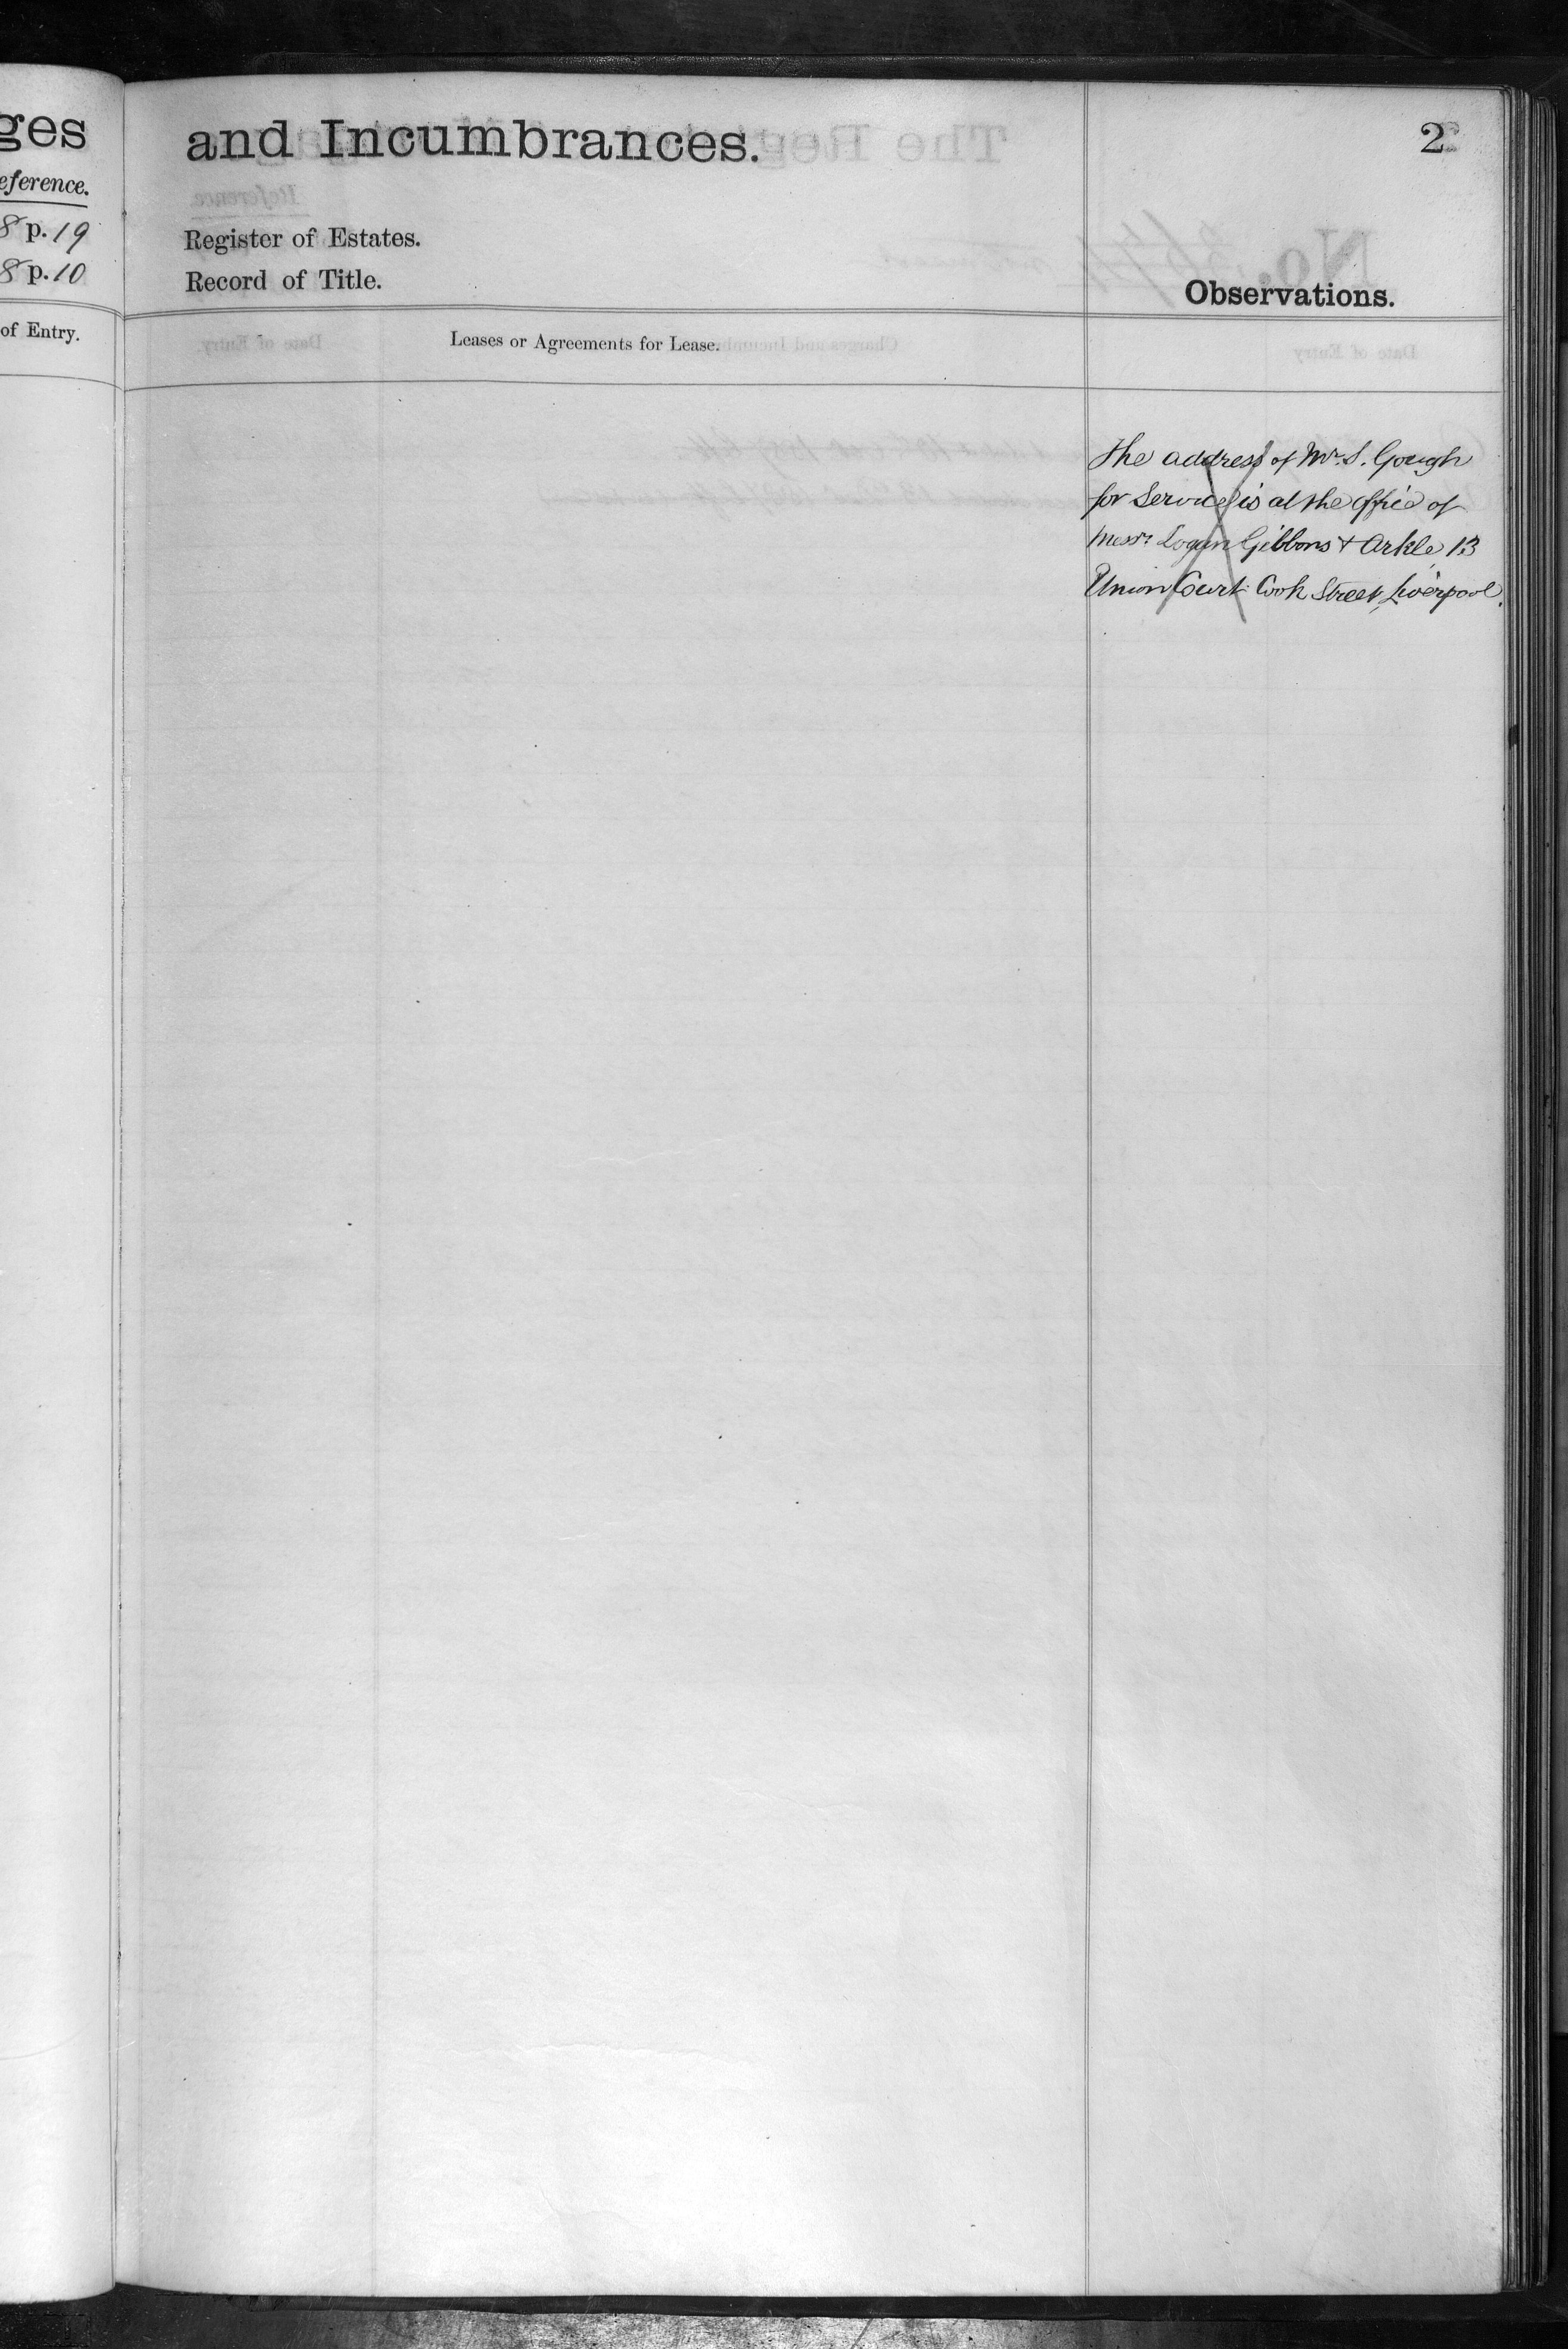 ges
eference.
8 p. 19
8 p. 10
of Entry.
and Incumbrances.
2
Register of Estates.
Record of Title.
Observations.
Leases or Agreements for Lease.
The address of Mr. S. Gough
for Service is at the office of
Messrs Logan Gibbons & Arkle, 13
Union Court Cook Street, Liverpool.